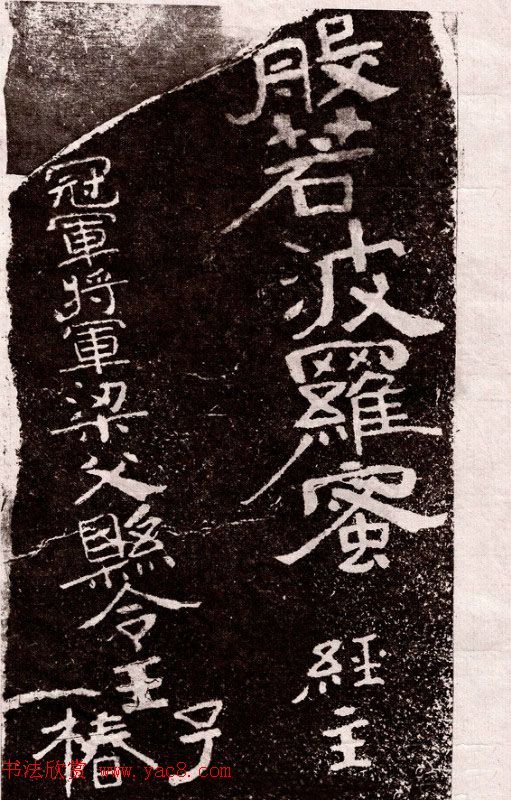 般若波羅蜜經主
冠軍將軍梁父縣令王子椿
书法欣赏 www.yac8.com